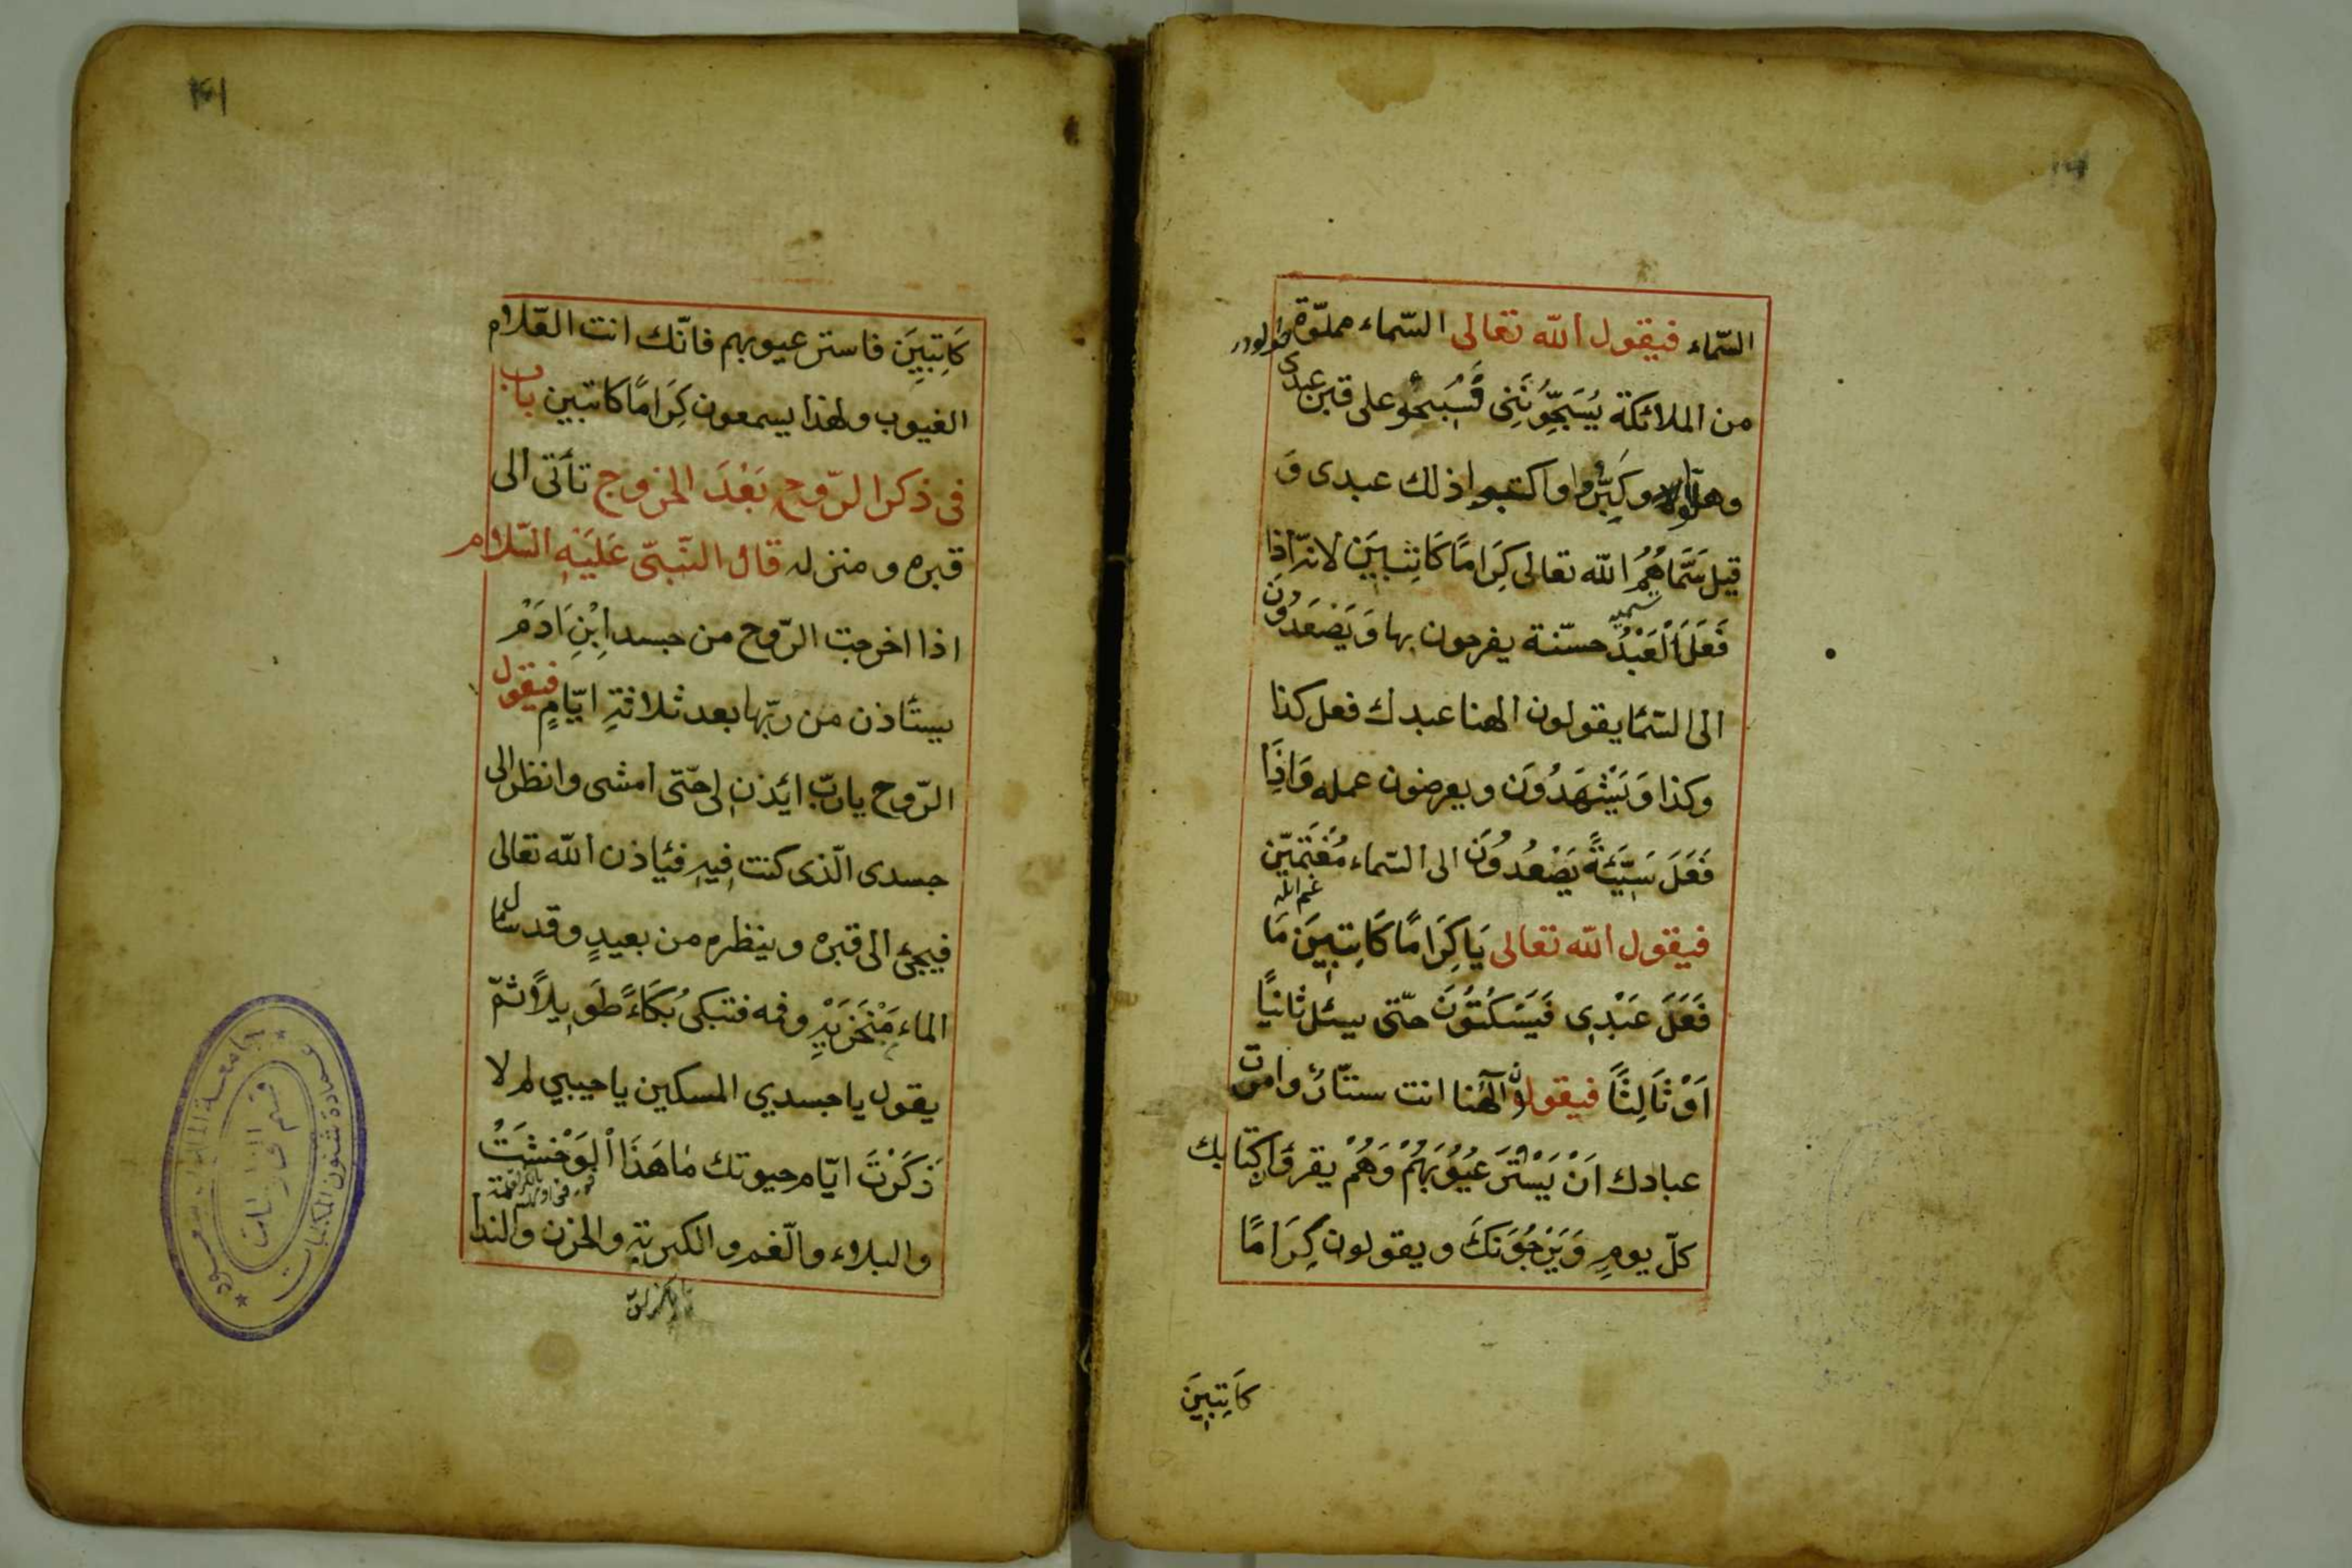 السّماء فيقول الله تعالى السّماء مملوّة
من الملائكة يُسَبِّحُونَنِى فَسَبِّحُوا على قبر عبدى
وهلّلوا وكَبِّرُوا واكتبوا ذلك عبدى وَ
قيل سَمَّاهُمُ الله تعالى كِرَامًا كَاتِبِينَ لانّه اذا
فَعَلَ الْعَبْدُ حسنة يفرحون بها وَيَصْعَدُونَ
الى السّما يقولون الهنا عبدك فعل كذا
وكذا وَيَشْهَدُونَ ويعرضون عمله وَاذا
فَعَلَ سَيِّئَةً يَصْعُدُونَ الى السّماء مُغْتَمِّين
فيقول الله تعالى يَا كِرَامًا كَاتِبِينَ مَا
فَعَلَ عَبْدِى فَيَسْكُتُونَ حتّى يسئل ثانيًا
اَوْ ثَالِثًا فيقولون الٓهنا انت ستّار وامرت
عبادك اَنْ يَسْتُرَ عُيُوبَهُمْ وَهُمْ يقرؤا كِتابك
كلّ يومٍ وَيَرْجُونَكَ ويقولون كِرَامًا
كَاتِبِينَ
كَاتِبِينَ فاستر عيوبهم فانّك انت العّلام
الغيوب ولهذا يسمعون كِرَامًا كاتبين باب
فى ذكر الرّوح بَعْدَ الخروج تأتى الى
قبره ومنزله قال النّبىّ عَلَيْهِ السّلام
اذا اخرجت الرّوح من جسد اِبْنِ اَدَمْ
يستأذن من ربّها بعد ثلاثةِ ايّامٍ فيقول
الرّوح يا ربّ ائذن لى حتّى امشى وانظر الى
جسدى الّذى كنت فيهِ فيأذن الله تعالى
فيجئ الى قبره وينظره من بعيدٍ وقد سال
الماء مَنْخَرَيْهِ وفمه فتبكى بُكَاءً طَوِيلًا ثمّ
يقول يا جسدي المسكين يا حبيبي لم لا
ذَكَرْتَ ايّام حيوتك مٰا هَذَا اْلوَحْشَتُ
والبلاء والّغم والكربةِ والحزن والندا
جامعة الملك سعود
عمادة شئون المكتبات
قسم المخطوطات